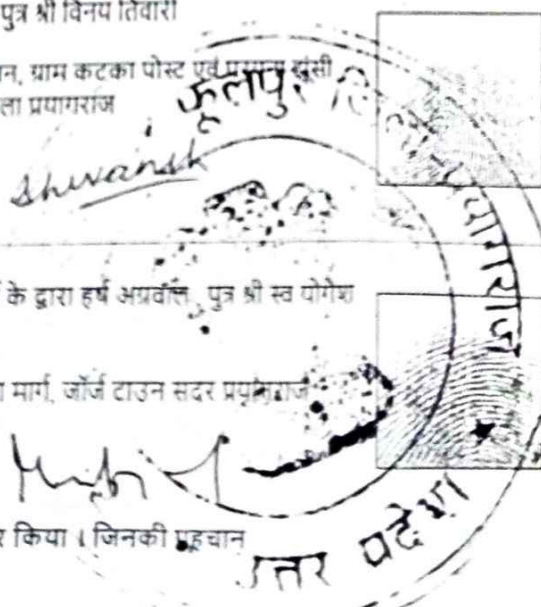 पुत्र श्री विनय तिवारी
न, ग्राम कटका पोस्ट एवं परगना झूंसी
ला प्रयागराज
फूलपुर जिला प्रयागराज
Shivansh
के द्वारा हर्ष अग्रवाल , पुत्र श्री स्व योगेश
मार्ग, जॉर्ज टाउन सदर प्रयागराज
र किया । जिनकी पहचान
उत्तर प्रदेश